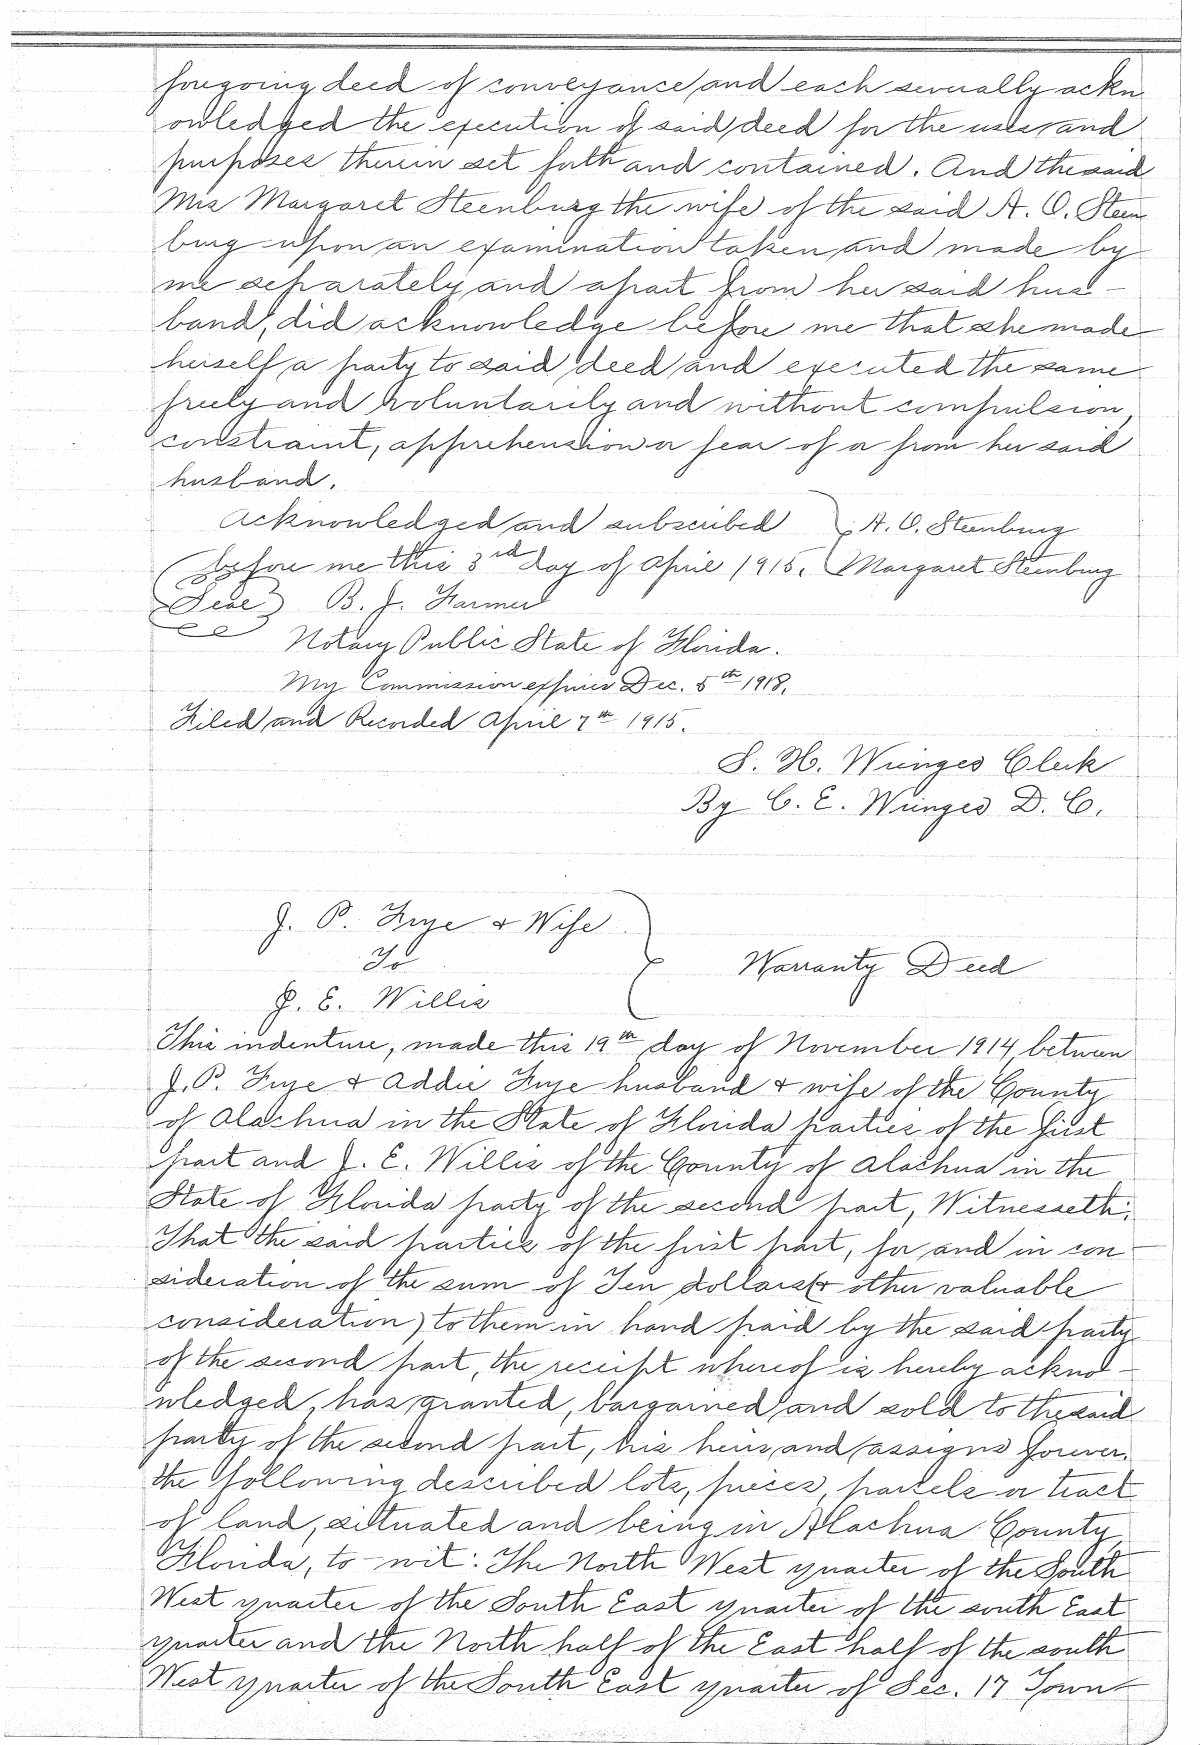 foregoing deed of conveyance and each severally ackn
owledged the execution of said deed for the uses and
purposes therein set forth and contained. And the said
Mrs Margaret Steenburg the wife of the said A. O. Steen
burg upon an examination taken and made by
me separately and apart from her said hus-
band, did acknowledge before me that she made
herself a party to said deed and executed the same
freely and voluntarily and without compulsion,
constraint, apprehension or fear of or from her said
husband.
Acknowledged and subscribed } A. O. Steenburg
before me this 3rd day of April 1915. Margaret Steenburg
Seal B. J. Farmer
Notary Public State of Florida.
My Commission expires Dec. 5th 1918.
Filed and Recorded April 7th 1915.
S. H. Wienges Clerk
By C. E. Wienges D. C.
J. P. Frye & Wife
To } Warranty Deed
J. E. Willis
This indenture, made this 19th day of November 1914 between
J. P. Frye & Addie Frye husband & wife of the County
of Alachua in the State of Florida parties of the first
part and J. E. Willis of the County of Alachua in the
State of Florida party of the second part, Witnesseth:
That the said parties of the first part, for and in con-
sideration of the sum of Ten dollars (& other valuable
consideration) to them in hand paid by the said party
of the second part, the receipt whereof is hereby ackno-
wledged, has granted, bargained and sold to the said
party of the second part, his heirs and assigns forever.
the following described lots, pieces, parcels or tract
of land, situated and being in Alachua County,
Florida, to-wit: The North West quarter of the South
West quarter of the South East quarter of the south East
quarter and the North half of the East half of the south
West quarter of the South East quarter of Sec. 17 Town-